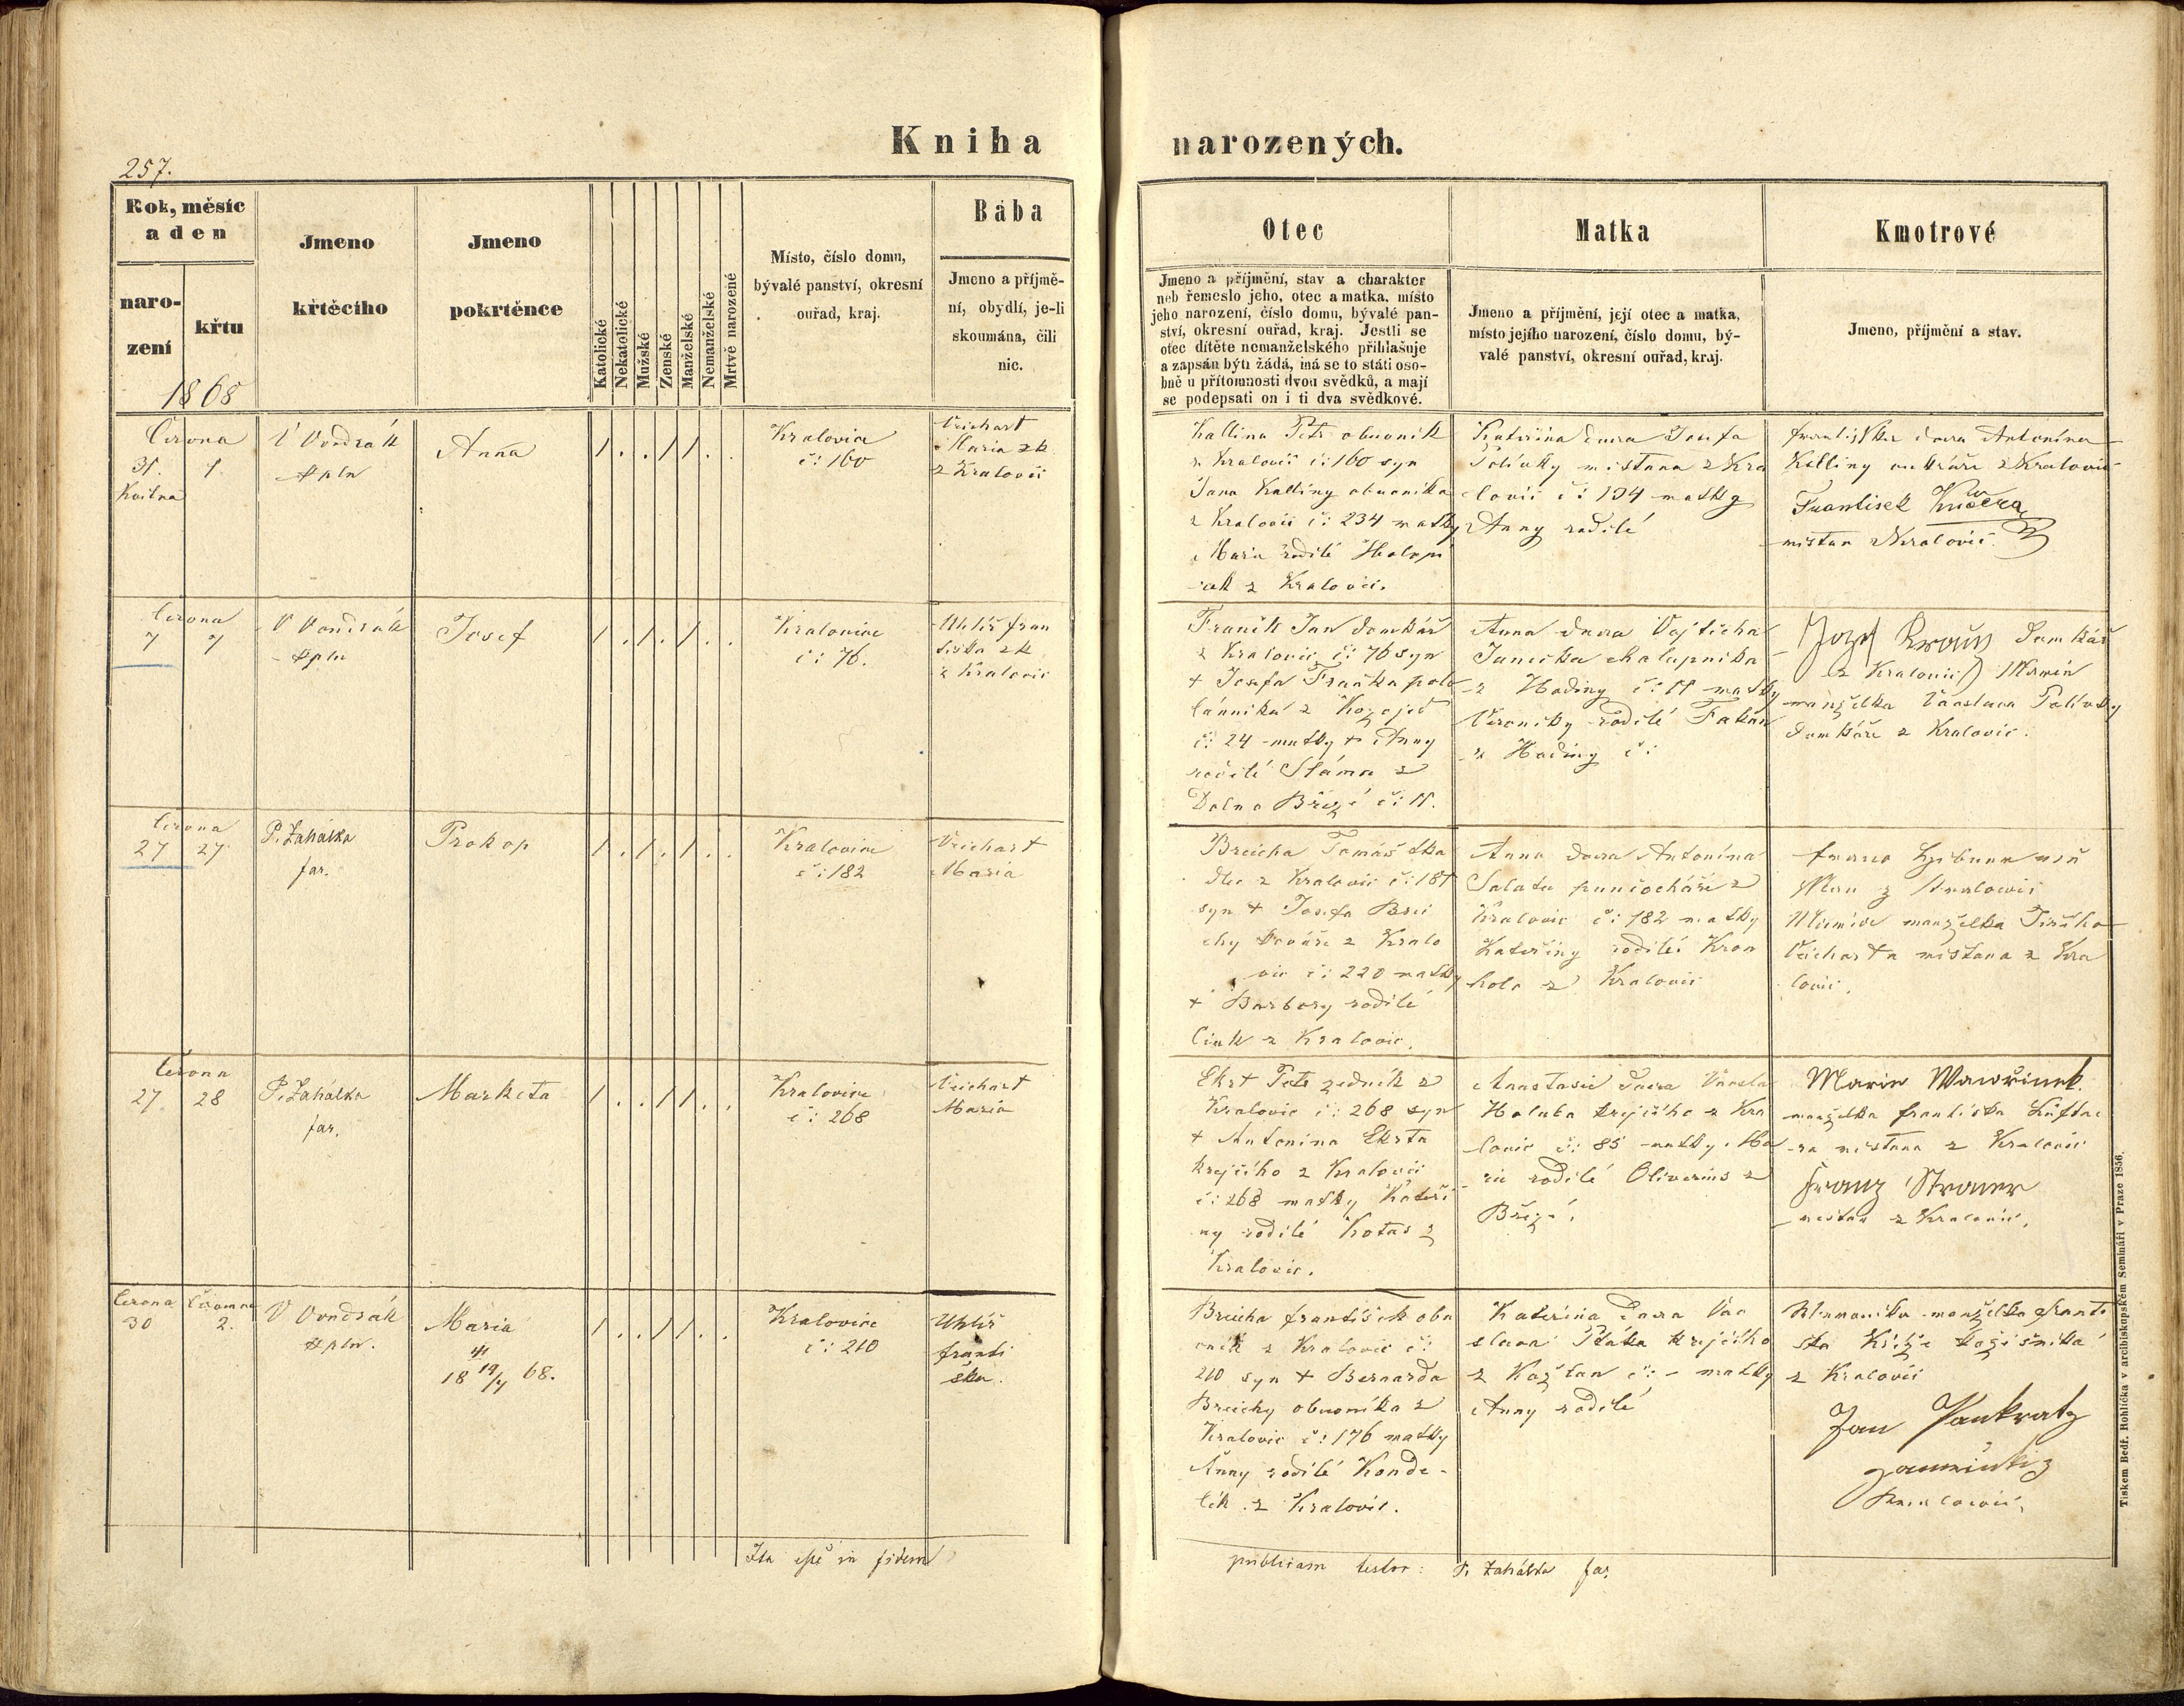 Kniha narozených.
257.
Rok, měsíc
a den
naro-
zení
křtu
1868
Jmeno
křtěcího
Jmeno
pokrtěnce
Katolické
Nekatolické
Mužské
Ženské
Manželské
Nemanželské
Mrtvě narozené
Místo, číslo domu,
bývalé panství, okresní
ouřad, kraj.
Bába
Jmeno a příjmě-
ní, obydlí, je-li
skoumána, čili
nic.
Otec
Jmeno a příjmění, stav a charakter
neb řemeslo jeho, otec a matka, místo
jeho narození, číslo domu, bývalé pan-
ství, okresní ouřad, kraj. Jestli se
otec dítěte nemanželského přihlašuje
a zapsán býti žádá, má se to státi oso-
bně u přítomnosti dvou svědků, a mají
se podepsati on i ti dva svědkové.
Matka
Jmeno a příjmění, její otec a matka,
místo jejího narození, číslo domu, bý-
valé panství, okresní ouřad, kraj.
Kmotrové
Jmeno, příjmění a stav.
Června
31. 1.
Května
V Vondrák
kpln
Anna
Kralovice
č: 160
Veichart
Maria zk
z Kralovic
Kallina Petr obuvnik
z Kralovic č: 160 syn
Jana Kalliny obuvnika
z Kralovic č: 234 matky
Marie rodilé
z Kralovic.
Kateřina dcera Josefa
Polívky mistana z Kra
lovic č: 134 matky
Anny rodilé
Františka dcera Antonína
Kalliny z Kralovic
Frantisek Kučera
mistan z Kralovic
Června
7 7
V Vondrák
kpln
Josef
Kralovice
č: 76.
Uhlíř Fran
tiska zk
z Kralovic
Franěk Jan domkář
z Kralovic č: 76 syn
+ Josefa Fraňka polo
lánnika z Kozojed
č: 24 matky + Anny
rodilé Sláma z
Dolno Březí č: 11.
Anna dcera Vojtěcha
Janečka chalupnika
z Hodiny č: 11 matky
Veroniky rodilé
z Hodiny č:
Jozef Kraus Domkář
z Kralovic Marie
manželka Vaaslava Polívky
domkáře z Kralovic.
Června
27 27
P. Zahálka
far.
Prokop
Kralovice
č: 182
Veichart
Maria
Breicha Tomáš tka
dlec z Kralovic č: 181
syn + Josefa Brei
chy kováře z Kralo
vic č: 220 matky
+ Barbory rodilé
Cink z Kralovic.
Anna dcera Antonína
Salata punčocháře z
Kralovic č: 182 matky
Kateřiny rodilé Kron
hole z Kralovic
manželka Jiřího
Veicharta mistana z Kra
lovic.
Června
27 28
P. Zahálka
far.
Marketa
Kralovice
č: 268
Veichart
Maria
Ekrt Petr zedník z
Kralovic č: 268 syn
+ Antonína Ekrta
krejčího z Kralovic
č: 268 matky Kateři
ny rodilé Kotas z
Kralovic.
Anastasie dcera Vácsla
Holuba krejčího z Kra
lovic č: 85 matky Ma
rie rodilé Oliverius z
Březí.
Marie Wawřinek.
manželka Františka
ra mistana z Kralovic
Franz Straner
mistan z Kralovic.
Června Července
30 2.
V Vondrák
kpln.
Maria
18 19/7 68.
Kralovice
č: 210
Uhlíř
Franti
ška.
Breicha František obu
vník z Kralovic č:
210 syn + Bernarda
Breichy obuvníka z
Kralovic č: 176 matky
Anny rodilé Konde-
lík z Kralovic.
Kateřina dcera Vác
slava Ptáka krejčího
z Kožlan č: - matky
Anny rodilé
manželka Franti
ška
z Kralovic
Jan Pankratz
Kralovic.
Ita esse in fidem publicam testor: P. Zahálka far.
Tiskem Bedř. Rohlíčka v arcibiskupském Semináři v Praze 1856.